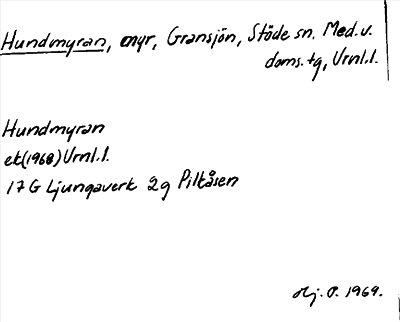 Hundmyran, myr, Gransjön, Stöde sn. Med.v.
doms. tg, Vrnl.l.
Hundmyran
ek(1968) Vrnl.l.
17 G Ljungaverk 2g Pilkåsen
O. 1969.